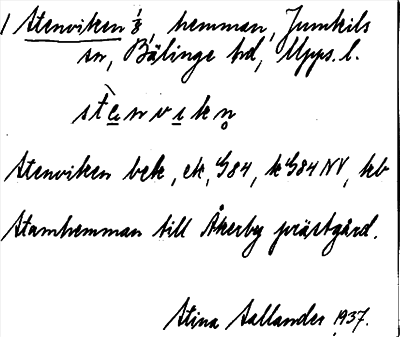 1 Stenviken 1/8, hemman, Jumkils
sn, Bälinge hd, Upps. l.
stè̱nvi̱kn̥
Stenviken bek, ek, G84, k G84 NV, kb
Stamhemman till Åkerby prästgård.
Stina Sallander 1937.